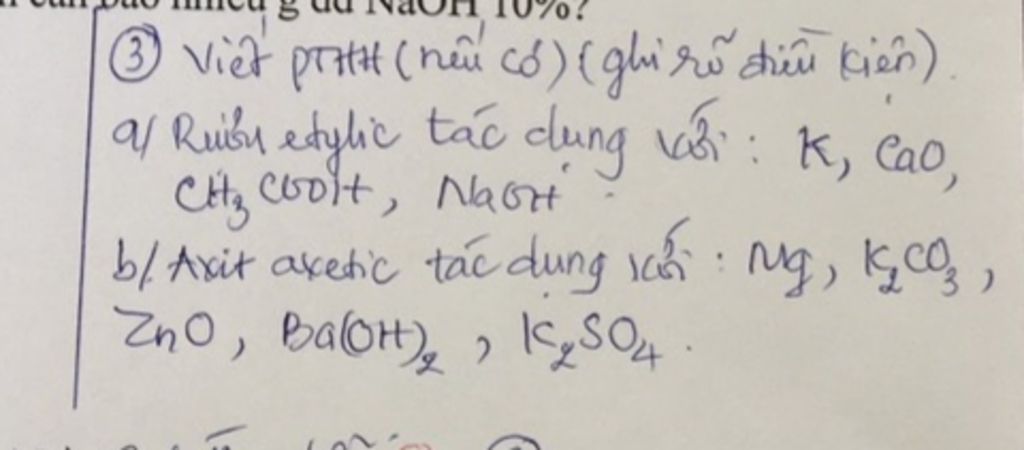 cần bao nhiêu g dd NaOH 10%?
③ Viết PTHH (nếu có) (ghi rõ điều kiện).
a/ Rượu etylic tác dụng với : K, CaO,
CH₃COOH, NaOH.
b/. Axit axetic tác dụng với : Mg, K₂CO₃,
ZnO, Ba(OH)₂, K₂SO₄.